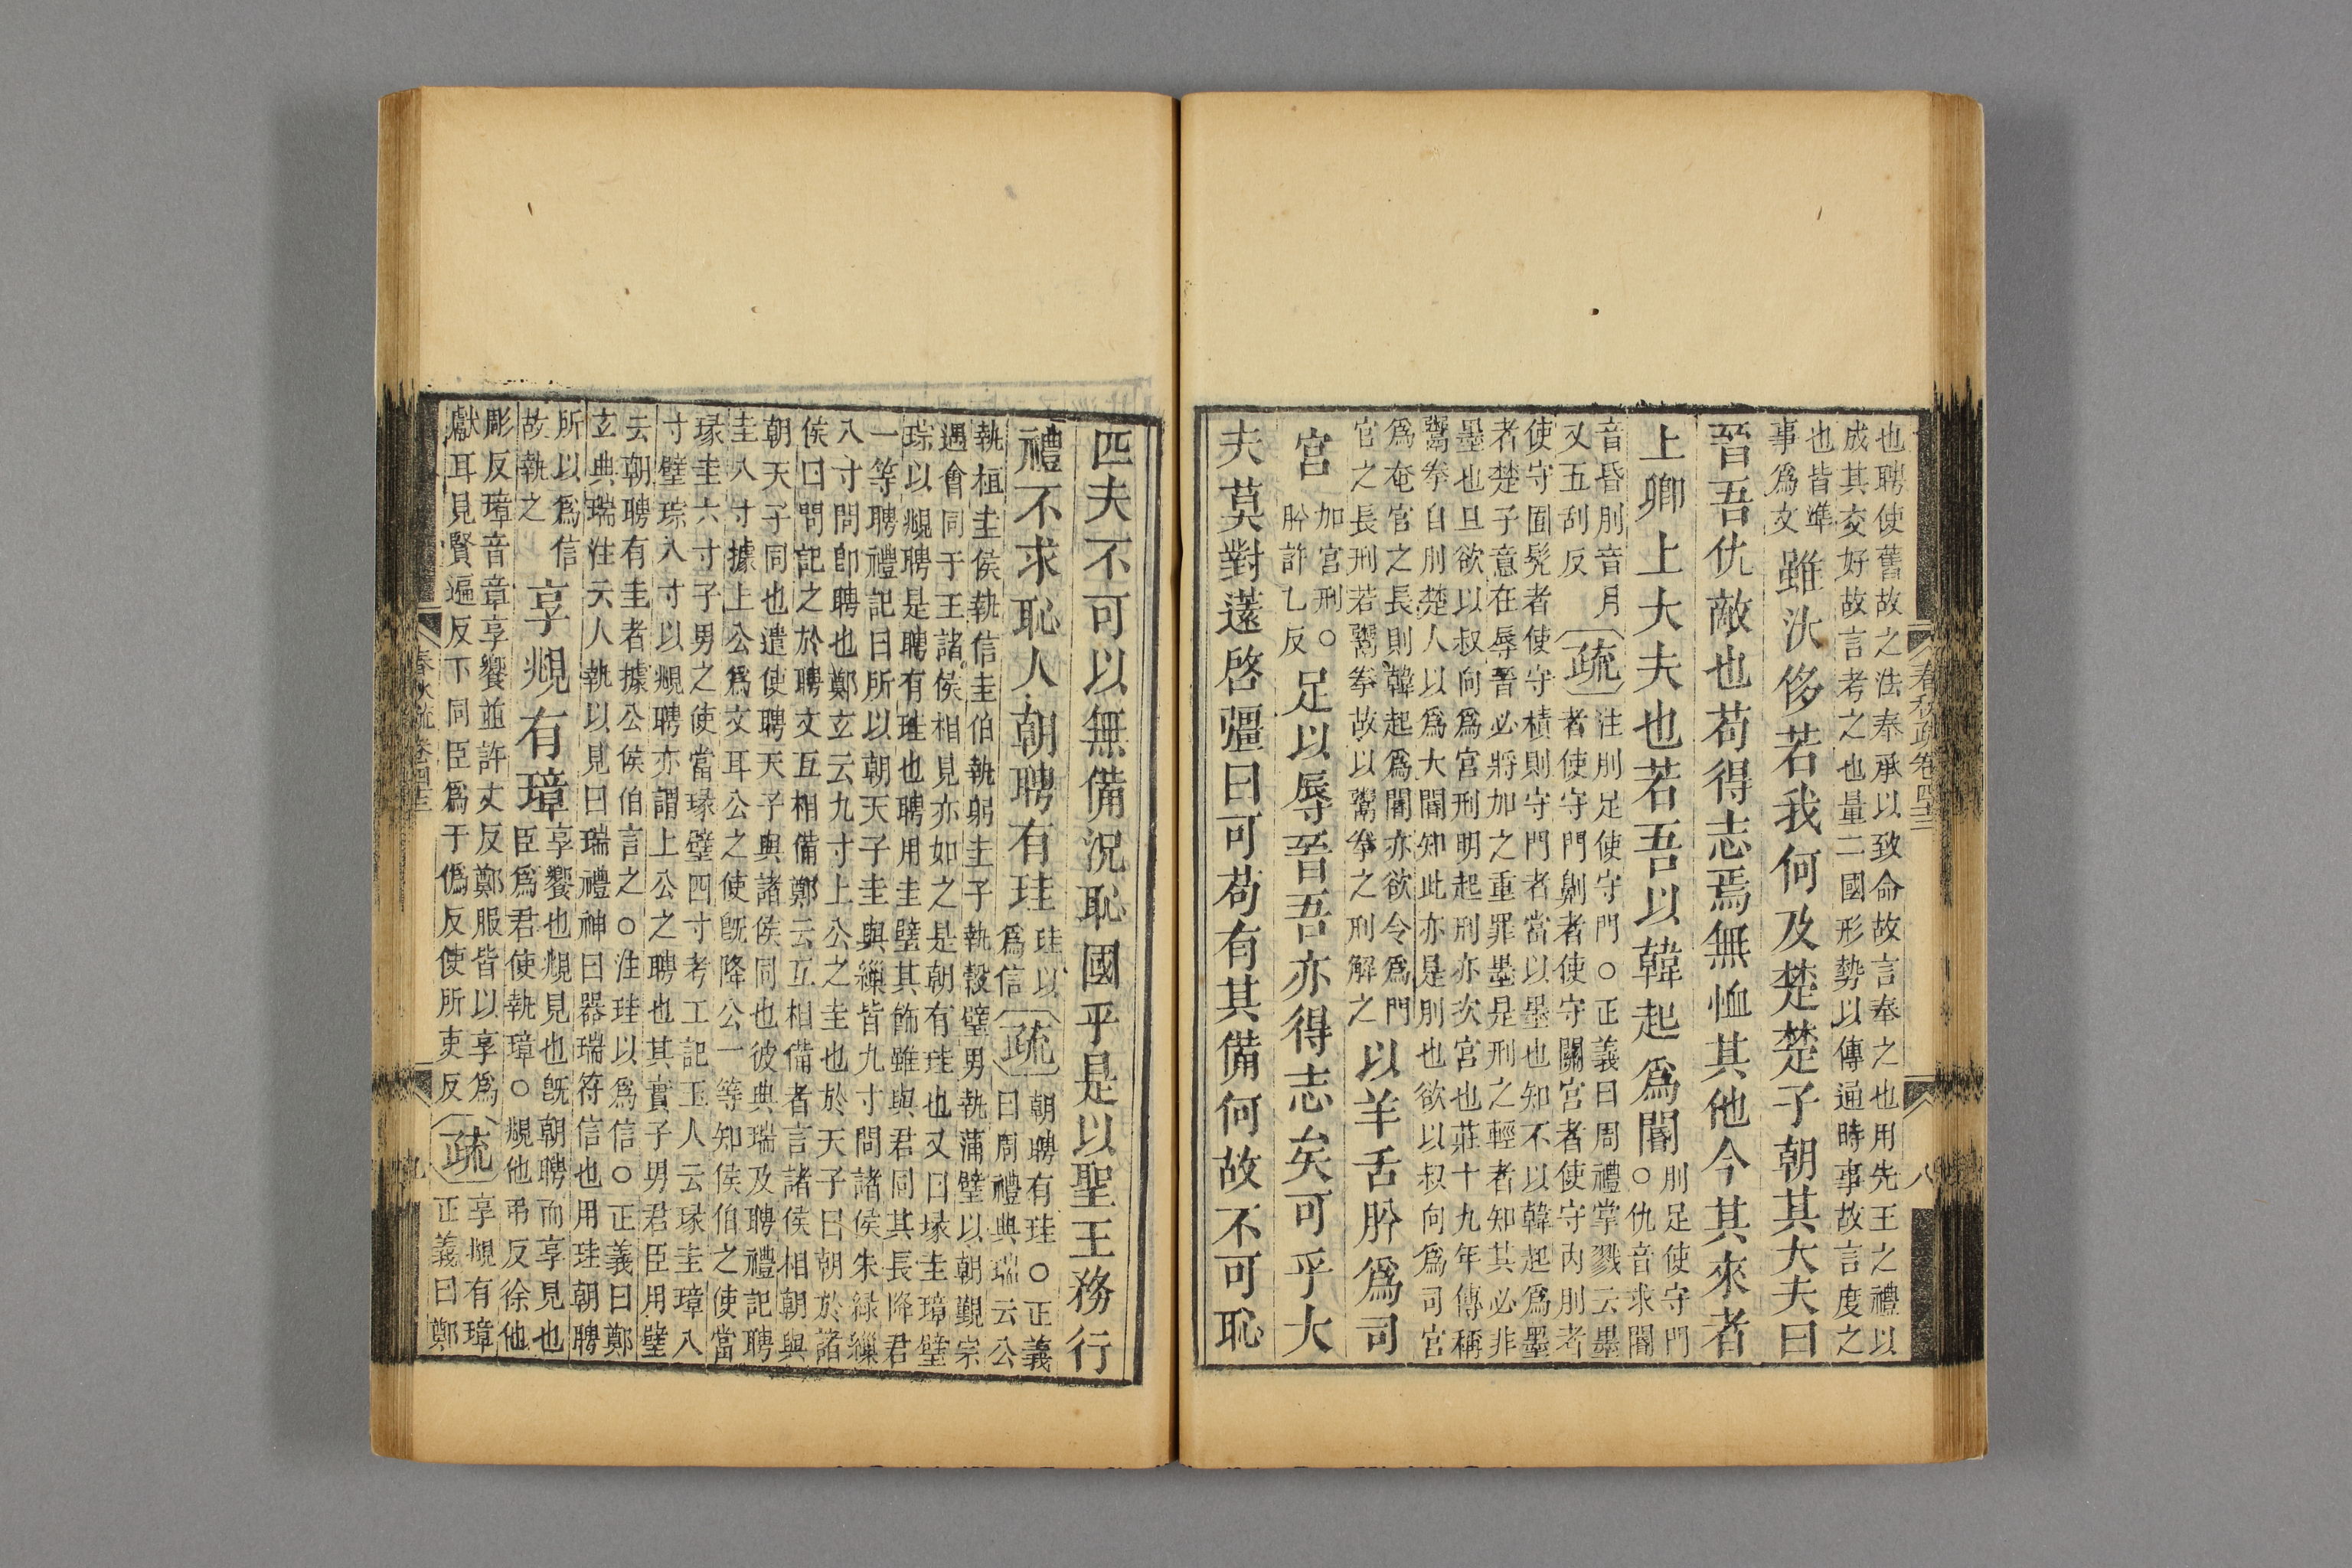 也聘使舊故之法奉承以致命故言奉之也用先王之禮以
成其交好故言考之也量二國形勢以傳通時事故言度之
也皆準
事爲文
雖汏侈若我何及楚楚子朝其大夫曰
晉吾仇敵也苟得志焉無恤其他今其來者
上卿上大夫也若吾以韓起爲閽
刖足使守門
〇仇音求閽
音昏刖音月
又五刮反
疏
注刖足使守門〇正義曰周禮掌戮云墨
者使守門劓者使守關宮者使守內刖者
使守囿髡者使守積則守門者當以墨也知不以韓起爲墨
者楚子意在辱晉必將加之重罪墨是刑之輕者知其必非
墨也且欲以叔向爲宮刑明起刑亦次宮也莊十九年傳稱
鬻拳自刖楚人以爲大閽知此亦是刖也欲以叔向爲司宮
爲奄官之長則韓起爲閽亦欲令爲門
官之長刑若鬻拳故以鬻拳之刑解之
以羊舌肸爲司
宮
加宮刑〇
肸許乙反
足以辱晉吾亦得志矣可乎大
夫莫對薳啓彊曰可苟有其備何故不可恥
春秋疏卷四十三
八
匹夫不可以無備況恥國乎是以聖王務行
禮不求恥人朝聘有珪
珪以
爲信
疏
朝聘有珪〇正義
曰周禮典瑞云公
執桓圭侯執信圭伯執躬圭子執穀璧男執蒲璧以朝覲宗
遇會同于王諸侯相見亦如之是朝有珪也又曰瑑圭璋璧
琮以覜聘是聘有珪也聘用圭璧其飾雖與君同其長降君
一等聘禮記曰所以朝天子圭與繅皆九寸問諸侯朱綠繅
八寸問即聘也鄭玄云九寸上公之圭也於天子曰朝於諸
侯曰問記之於聘文互相備鄭云互相備者言諸侯相朝與
朝天子同也遣使聘天子與諸侯同也彼典瑞及聘禮記聘
圭八寸據上公爲文耳公之使旣降公一等知侯伯之使當
瑑圭六寸子男之使當瑑璧四寸考工記玉人云瑑圭璋八
寸璧琮八寸以覜聘亦謂上公之聘也其實子男君臣用璧
云朝聘有圭者據公侯伯言之〇注珪以爲信〇正義曰鄭
玄典瑞注云人執以見曰瑞禮神曰器瑞符信也用珪朝聘
所以爲信
故執之
享覜有璋
享饗也覜見也旣朝聘而享見也
臣爲君使執璋〇覜他弔反徐他
彫反璋音章享饗並許丈反鄭服皆以享爲
獻耳見賢遍反下同臣爲于僞反使所吏反
疏
享覜有璋
正義曰鄭
春秋疏卷四十三
九